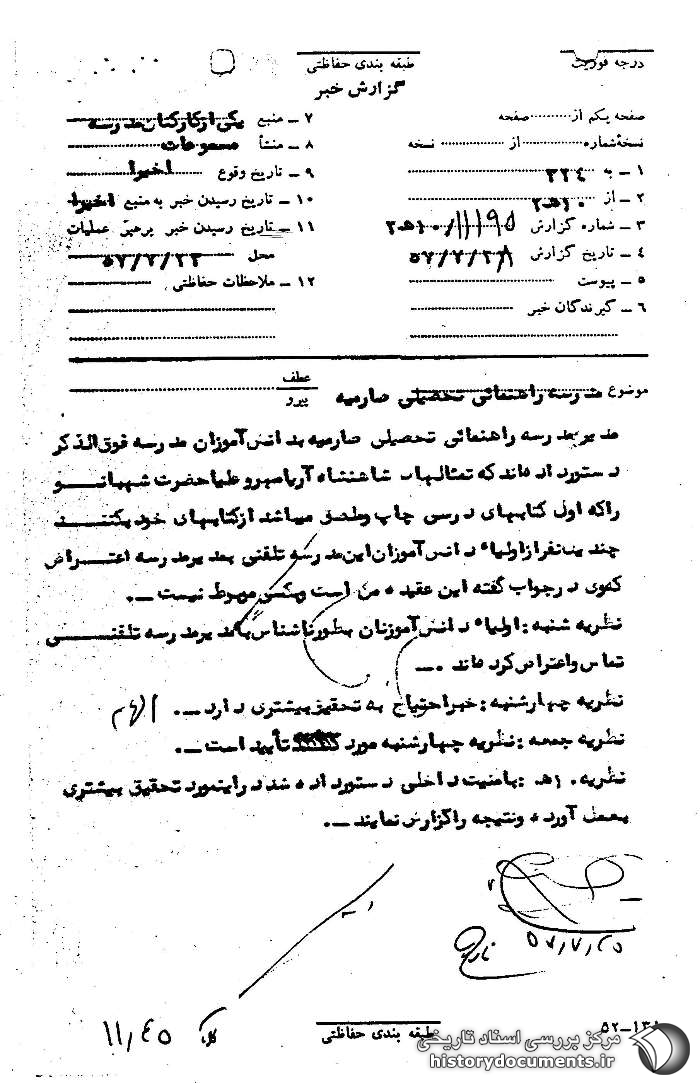 درجه فوریت
طبقه بندی حفاظتی
گزارش خبر
صفحه یکم از صفحه
نسخه شماره از نسخه
۱ ـ به ۳۲٤
۲ ـ از ۱۰هـ۲
۳ ـ شماره گزارش ۱۱۱۹۵/۱۰هـ۲
٤ ـ تاریخ گزارش ۵۷/۷/۲۸
۵ ـ پیوست
۶ ـ گیرندگان خبر
۷ ـ منبع یکی از کارکنان مدرسه
۸ ـ منشأ مسموعات
۹ ـ تاریخ وقوع اخیرا
۱۰ ـ تاریخ رسیدن خبر به منبع اخیرا
۱۱ ـ تاریخ رسیدن خبر برهبر عملیات
محل ۵۷/۷/۲۳
۱۲ ـ ملاحظات حفاظتی
موضوع مدرسه راهنمائی تحصیلی صارمیه
عطف
پیرو
مدیر مدرسه راهنمائی تحصیلی صارمیه بدانش آموزان مدرسه فوق الذکر
دستور داده اند که تمثالهای شاهنشاه آریامهر و علیاحضرت شهبانو
را که اول کتابهای درسی چاپ و ملصق میباشد از کتابهای خود بکنند
چندین نفر از اولیاء دانش آموزان این مدرسه تلفنی بمدیر مدرسه اعتراض
که وی در جواب گفته این عقیده من است و بکسی مربوط نیست ــ.
نظریه شنبه : اولیاء دانش آموزان بطور ناشناس با مدیر مدرسه تلفنی
تماس و اعتراض کرده اند ــ.
نظریه چهارشنبه : خبر احتیاج به تحقیق بیشتری دارد ــ.
نظریه جمعه : نظریه چهارشنبه مورد تأیید است ــ.
نظریه ۱۰هـ : بامنیت داخلی دستور داده شد در اینمورد تحقیق بیشتری
بعمل آورده و نتیجه را گزارش نمایند ــ.
۵۷/۷/۲۵
۱۱,٤۵
طبقه بندی حفاظتی
۵۲ـ۱۳۸
مرکز بررسی اسناد تاریخی
historydocuments.ir